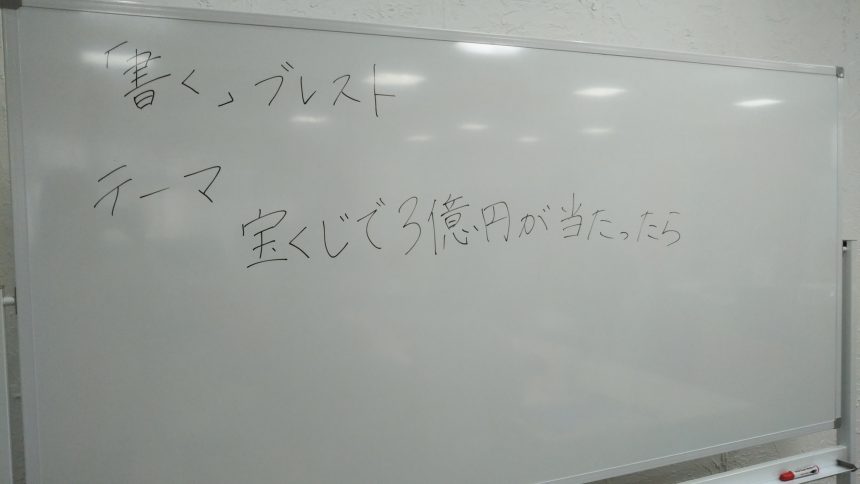 「書く」ブレスト
テーマ
宝くじで3億円が当たったら